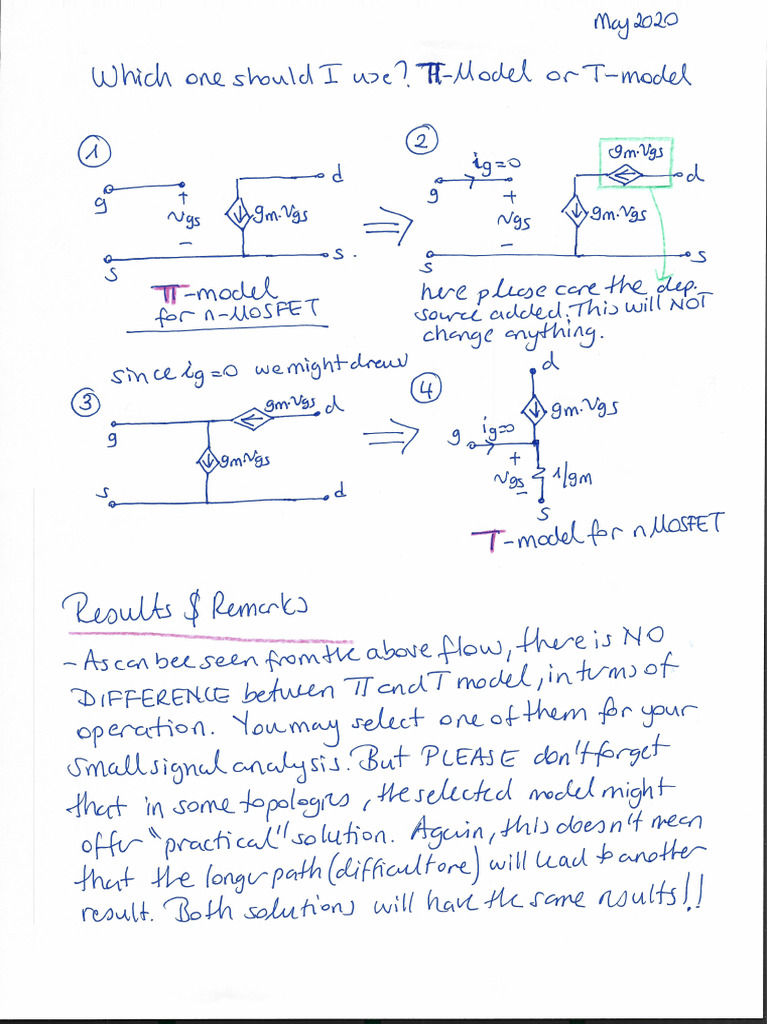 May 2020
Which one should I use? π-Model or T-model
1
g
+
Vgs
-
s
d
gm.Vgs
s.
π-model
for n-MOSFET
⇒
2
ig=0
g
+
Vgs
-
s
gm.Vgs
d
gm.Vgs
s
here please care the dep.
source added. This will NOT
change anything.
since ig=0 we might draw
3
g
gm.Vgs
d
gmVgs
s
d
⇒
4
d
gm.Vgs
g
ig=0
+
Vgs
-
1/gm
s
T-model for nMOSFET
Results & Remarks
- As can bee seen from the above flow, there is NO
DIFFERENCE between π and T model, in terms of
operation. You may select one of them for your
small signal analysis. But PLEASE don't forget
that in some topologies, the selected model might
offer "practical" solution. Again, this doesn't mean
that the longer path (difficult one) will lead to another
result. Both solutions will have the same results!!